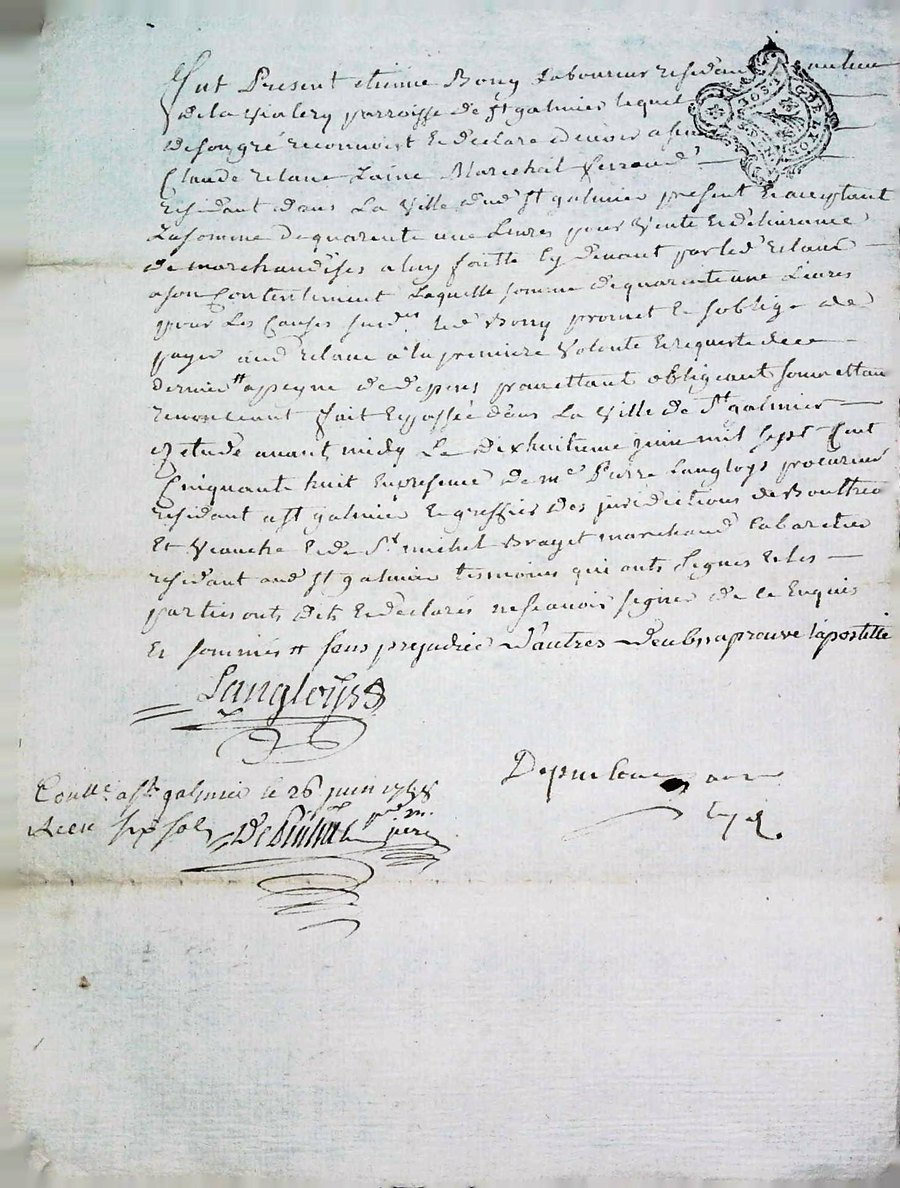 fut Present etienne Bory Laboureur residant au lieu
de la Vialery parroisse de St galmier lequel
de son gré reconnoist et declare devoir a sieur
Claude relave Laine Marechal ferrand
residant dans La Ville dud St galmier present et acceptant
La somme de quarente une Livres pour Vente et delivrance
de marchandises a luy faitte cy devant par led relave
a son Contentement Laquelle somme de quarente une Livres
pour Les Causes susd led Bory promet et s'oblige de
payer aud relave a la premiere Volonté et requeste de ce
dernier # a peyne de depens promettant obligeant soumettant
renonceant fait et passé dans La Ville de St galmier
etude avant midy Le dixhuitieme juin mil sept Cent
Cinquante huit en presence de me Pierre Langloys procureur
residant a St galmier et greffier des juridictions de
Et Veauche et de Sr michel Brayet marchand Cabaretier
residant aud St galmier temoins qui onts signes et les
parties onts dits et declarés ne scavoir signer de ce Enquis
Et sommés # sans prejudice d'autres deubs aprouvé l'apostille
Langloys
Conllé a St galmier le 26 juin 1758
Recu six sols